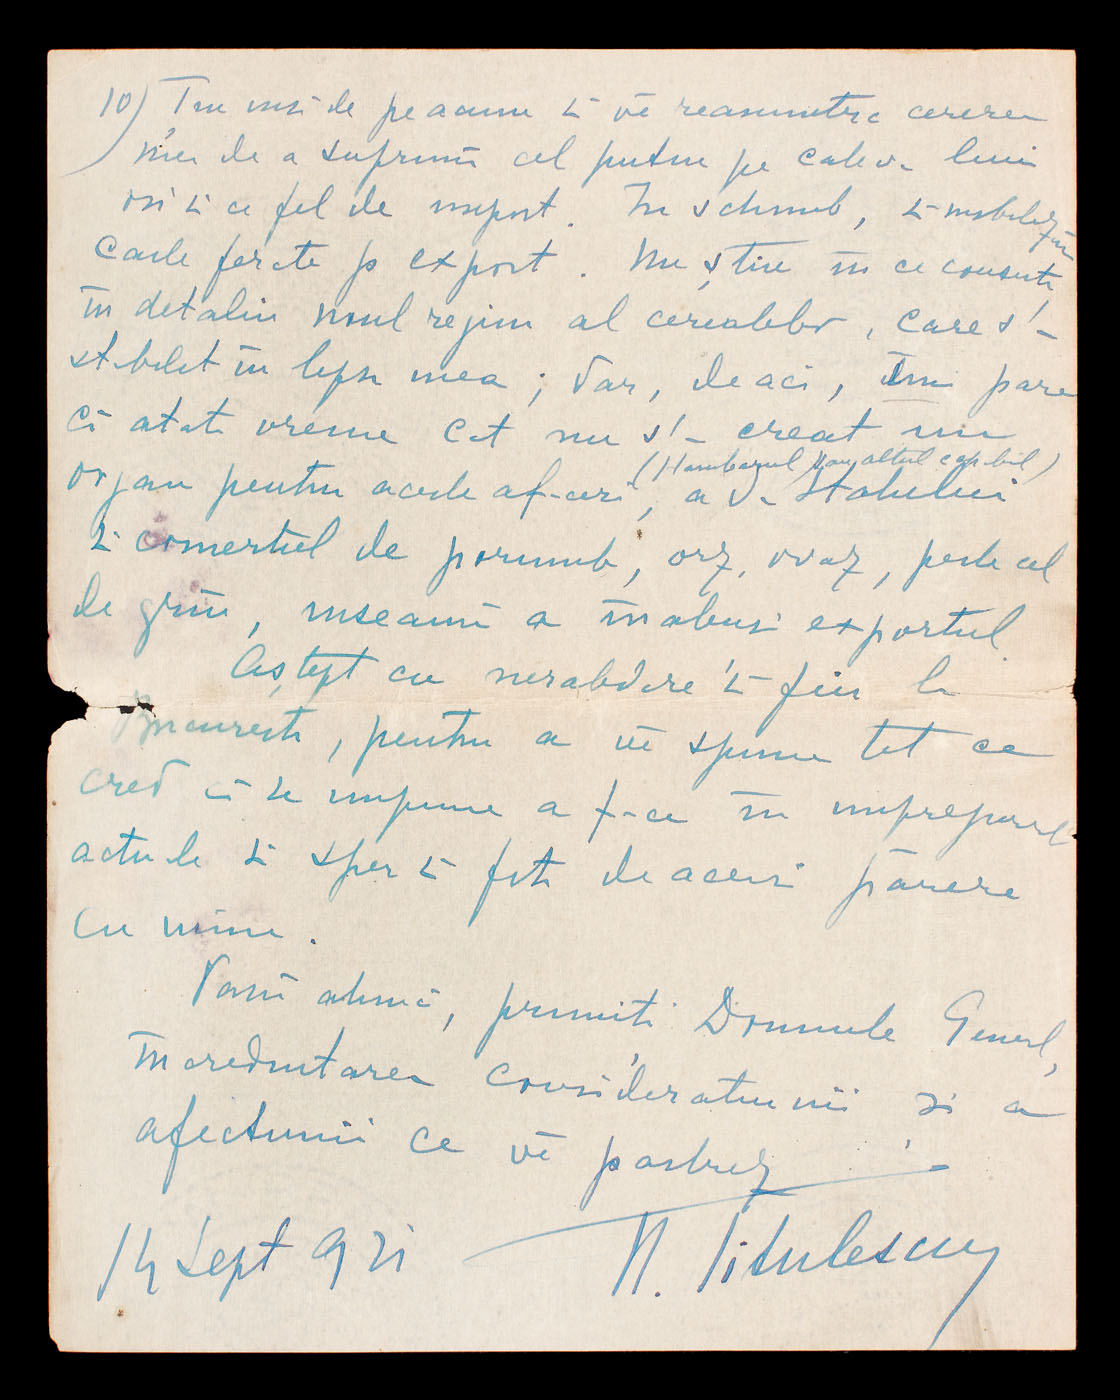 10) Țin însă de pe acum să vă reamintesc cererea
mea de a suprima cel puțin pe câteva luni
ori și ce fel de import. În schimb, să mobilizăm
Caile ferate p. export. Nu știu în ce consistă,
în detaliu noul regim al cerealelor, care s'a
stabilit în lipsa mea; dar, de aci, îmi pare
că atâta vreme cât nu s'a creat un
(Hambarul sau altul capabil)
organ pentru aceste afaceri, a da Statului
și comertul de porumb, orz, ovaz, peste cel
de grâu, inseamnă a înabuși exportul.
Aștept cu nerabdare să fiu la
București, pentru a vă spune tot ce
cred că se impune a face în imprejurările
actuale și sper să fiți de aceeași părere
cu mine.
Până atunci, primiți Domnule General,
încredintarea considerațiunii și a
afectiunii ce vă pastrez
14 Sept 921 N. Titulescu